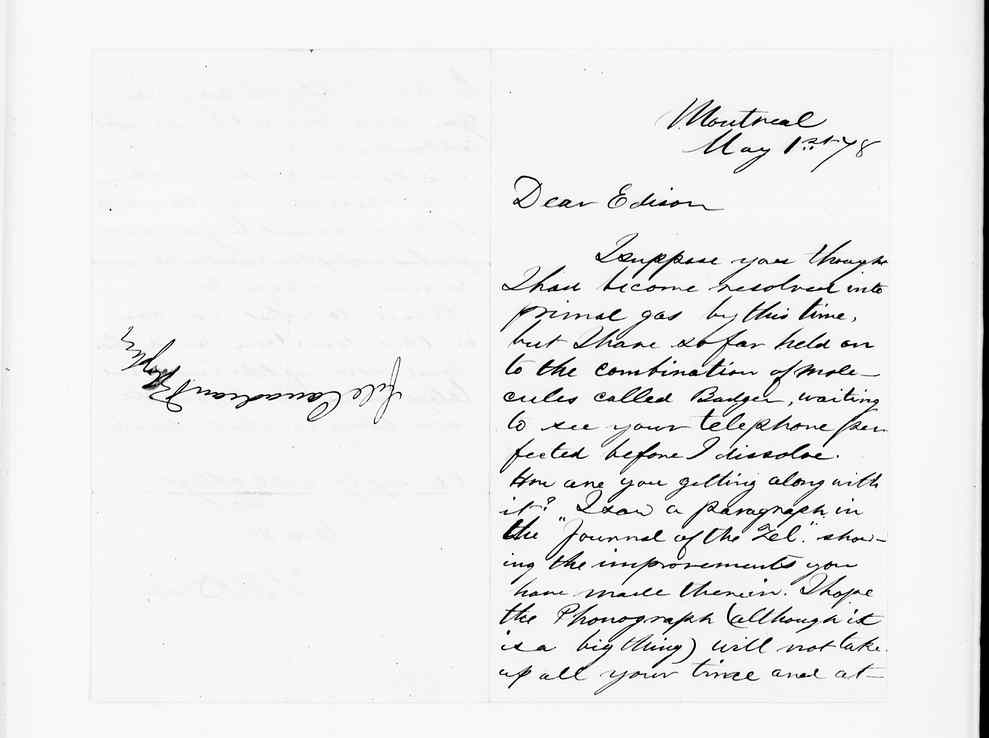 Montreal
May 1st 78
Dear Edison
I suppose you though
I had become resolved into
primal gas by this time,
but I have so far held on
to the combination of mole-
cules called Badger, waiting
to see your telephone per-
fected before I dissolve.
How are you getting along with
it? I saw a paragraph in
the "Journal of the Tel." show-
ing the improvements you
have made therein. I hope
the Phonograph (although it
is a big thing) will not take
up all your time and at-
File Canadian